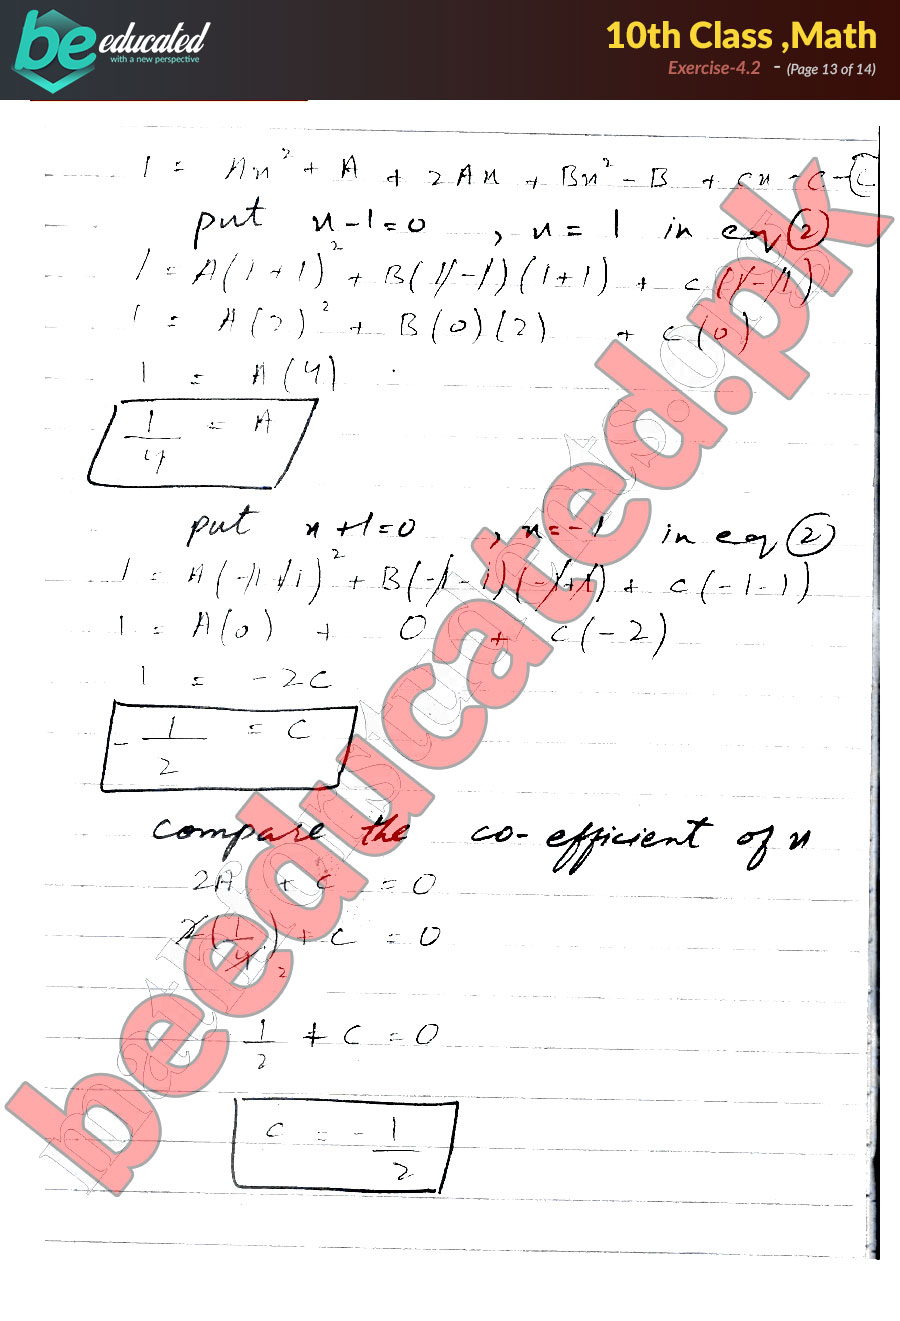 be educated
with a new perspective
10th Class ,Math
Exercise-4.2 - (Page 13 of 14)
1 = Ax² + A + 2Ax + Bx² - B + Cx - C
put x-1=0 , x = 1 in eq ②
1 = A(1+1)² + B(1-1)(1+1) + C(1-1)
1 = A(2)² + B(0)(2) + C(0)
1 = A(4)
1/4 = A
put x+1=0 , x=-1 in eq ②
1 = A(-1+1)² + B(-1-1)(-1+1) + C(-1-1)
1 = A(0) + 0 + C(-2)
1 = -2C
-1/2 = C
compare the co-efficient of x
2A + C = 0
2(1/4) + C = 0
2
1/2 + C = 0
C = -1/2
beeducated.pk